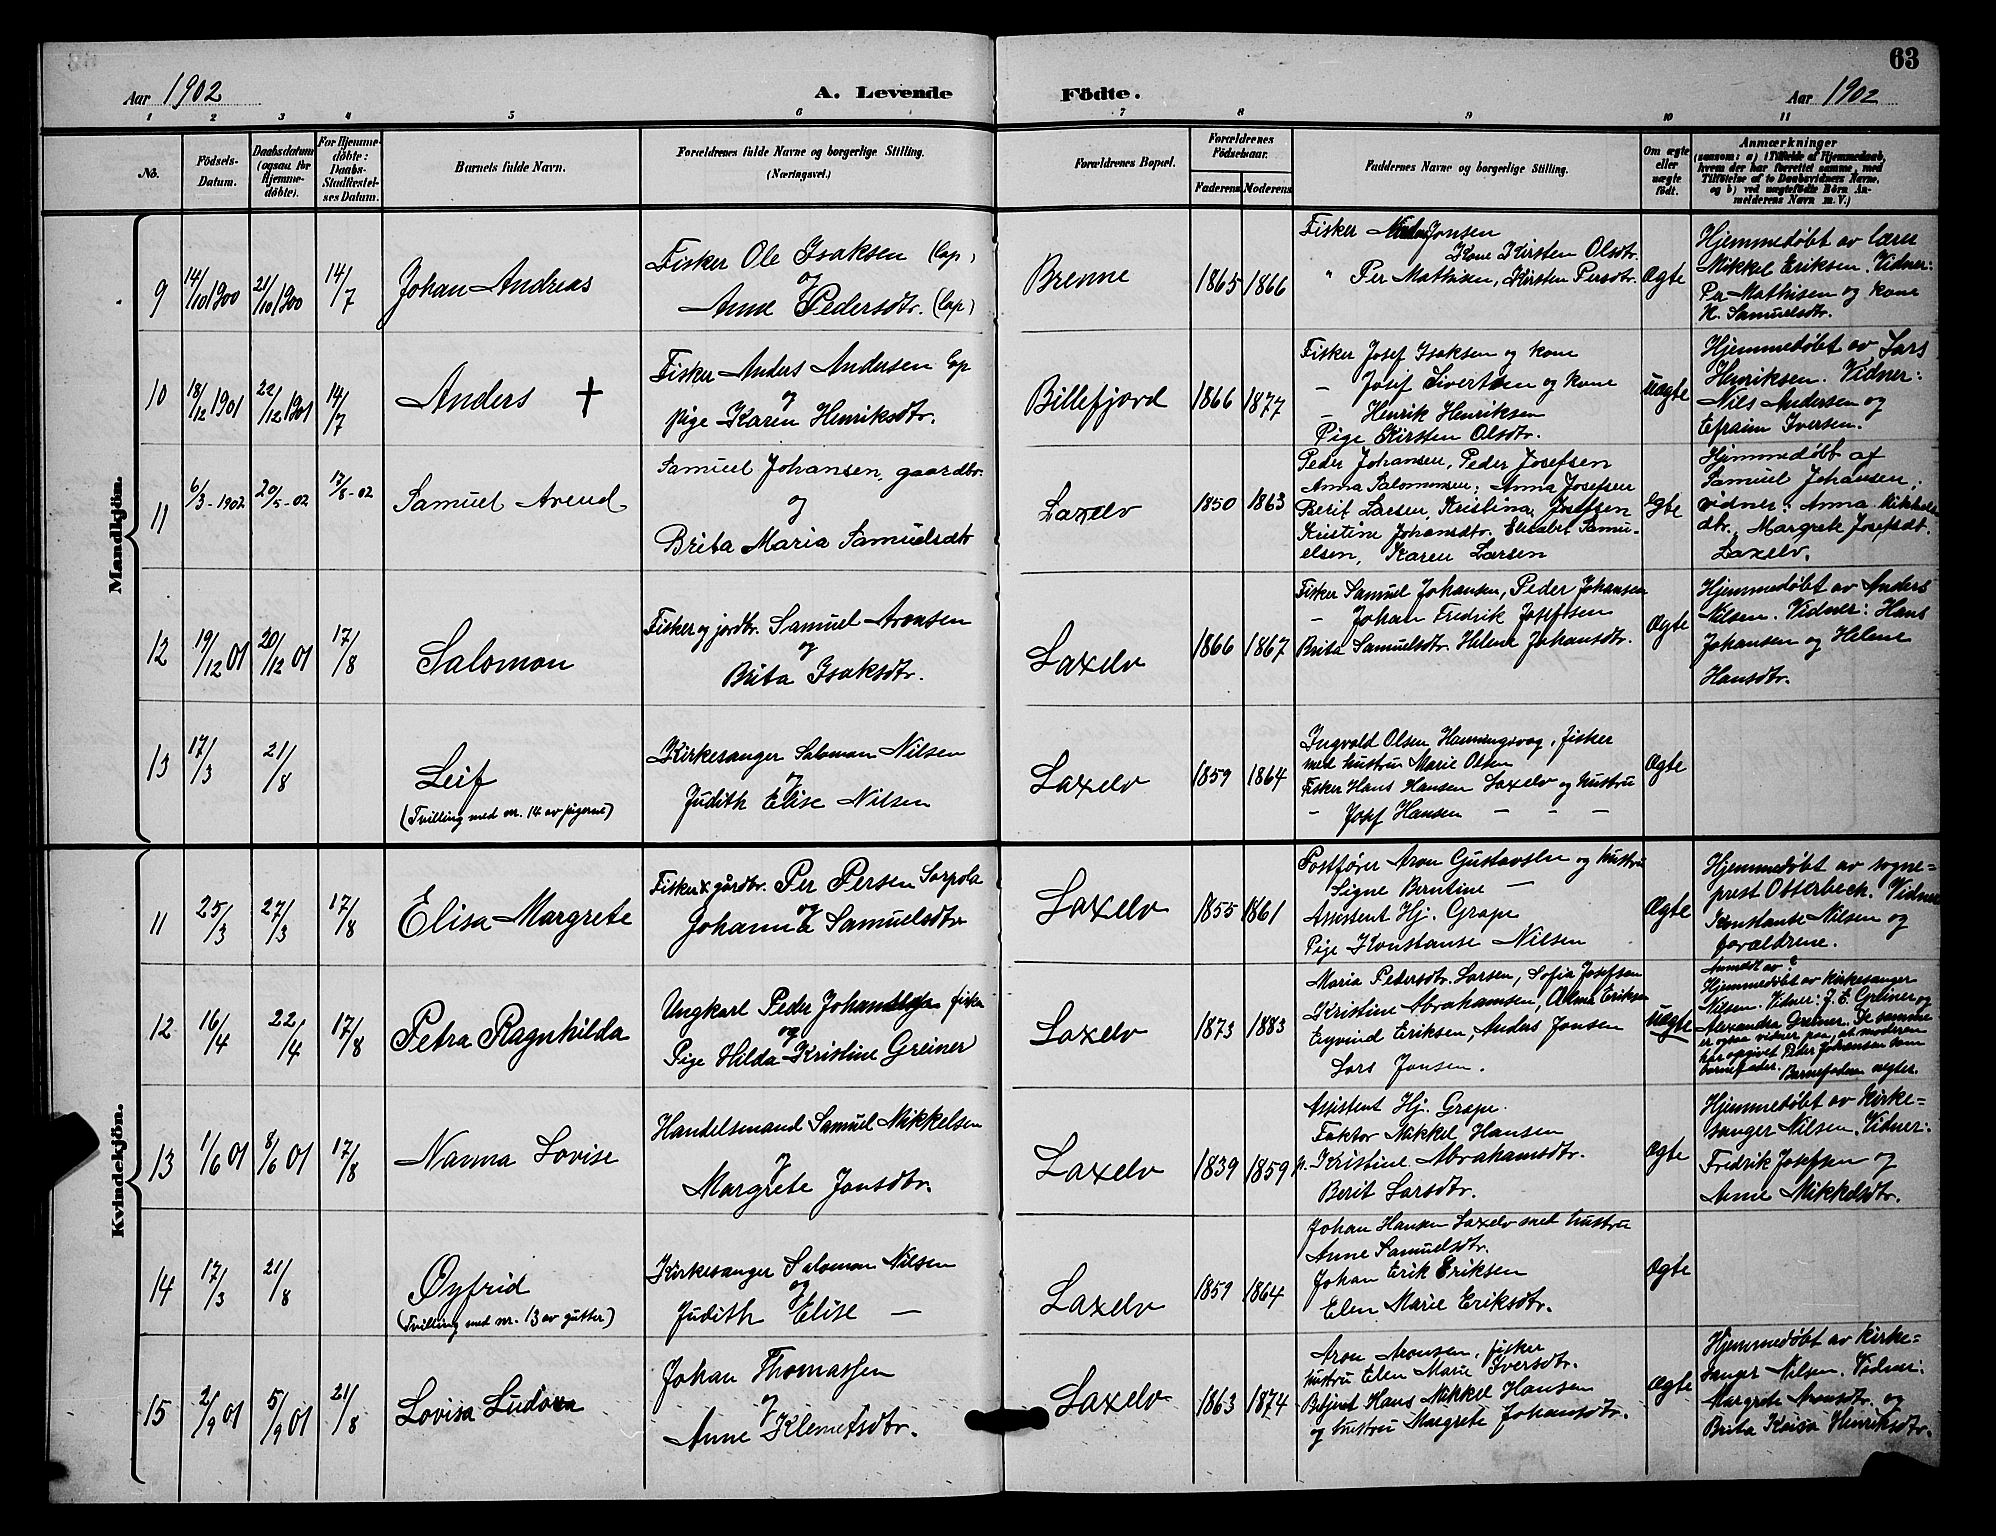 63
Aar 1902
A. Levende Födte.
Aar 1902
1 2 3 4 5 6 7 8 9 10 11
No.
Födsels-Datum.
Daabsdatum (ogsaa for Hjemme-döbte).
For Hjemme-döbte: Daabs-Stadfæstel-ses Datum.
Barnets fulde Navn.
Forældrenes fulde Navne og borgerlige Stilling.
(Næringsvei.)
Forældrenes Bopæl.
Forældrenes Födselsaar.
Faderens
Moderens
Faddernes Navne og borgerlige Stilling.
Om ægte eller uægte födt.
Anmærkninger
(saasom: a) i Tilfælde af Hjemmedaab, hvem der har forrettet samme, med Tilföielse af to Daabsvidners Navne, og b) ved uægtefødte Börn An-melderens Navn m. V.)
Mandkjön.
9
14/10 1900
21/10 1900
14/7
Johan Andreas
Fisker Ole Isaksen (lap)
og
Anne Pedersdtr. (lap)
Brenne
1865
1866
Fisker Jonsen
Kone Kirsten Olsdtr.
" Per Mathisen, Kirsten Persdtr.
Ægte
Hjemmedøbt av lærer
Mikkel Eriksen. Vidner:
Per Mathisen og kone
K. Samuelsdtr.
10
18/12 1901
22/12 1901
14/7
Anders +
Fisker Anders Andersen lap
og
pige Karen Henriksdtr.
Billefjord
1866
1877
Fisker Josef Isaksen og kone
– Josef Sivertsen og kone
– Henrik Henriksen
Pige Kirsten Olsdtr.
uægte
Hjemmedøbt av Lars
Henriksen. Vidner:
Nils Andersen og
Efraim Iversen.
11
6/3-1902
20/5-02
17/8-02
Samuel Arend
Samuel Johansen, gaardbr.
og
Brita Maria Samuelsdtr
Laxelv
1850
1863
Peder Johansen, Peder Josefsen
Anna Salomonsen, Anna Josefsen
Berit Larsen, Kristina Josefsen
Kristine Johansdtr. Elisabet Samu-
elsen, Karen Larsen
Egte
Hjemmedøbt af
Samuel Johansen,
vidner: Anna Mikkels
dtr. Margrete Josefsdt.
Laxelv.
12
19/12 01
20/12 01
17/8
Salomon
Fisker og jordbr. Samuel Aronsen
og
Brita Isaksdtr.
Laxelv
1866
1867
Fisker Samuel Johansen, Peder Johansen
– Johan Fredrik Josefsen
Brita Samuelsdtr. Helene Johansdtr.
Ægte
Hjemmedøbt av Anders
Nilsen. Vidner: Hans
Johansen og Helene
Hansdtr.
13
17/3
21/8
Leif
(Tvilling med nr. 14 av pigerne)
Kirkesanger Salomon Nilsen
og
Judith Elise Nilsen
Laxelv
1859
1864
Ingvald Olsen, Honningsvaag, fisker
med hustru Marie Olsen
Fisker Hans Hansen Laxelv og hustru
– Josef Hansen – – –
Ægte
Kvindekjön.
11
25/3
27/3
17/8
Elisa Margrete
Fisker & gårdbr. Per Persen Sarpola
og
Johanne Samuelsdtr
Laxelv
1855
1861
Postfører Aron Gustavsen og hustru
Signe Berntine –
Assistent Hj. Grape
Pige Konstanse Nilsen
Ægte
Hjemmedøbt av sogne-
prest Otterbech. Vidner
Konstanse Nilsen og
forældrene.
12
16/4
22/4
17/8
Petra Ragnhilda
Ungkarl Peder Johansen fisker
og
Pige Hilda Kristine Greiner
Laxelv
1873
1883
Maria Pedersdtr. Larsen, Sofia Josefsen
Kristine Abrahamsen, Eriksen
Eyvind Eriksen, Anders Jonsen
Lars Jonsen.
uægte
Anmeldt av
Hjemmedøbt av Kirkesanger
Nilsen. Vidner: J. E. Greiner og
Alexandra Greiner. De samme
er ogsaa vidner paa, at moderen
har opgivet Peder Johansen som
barnefader. Barnefaderen negter.
13
1/6 01
8/6 01
17/8
Nanna Lovise
Handelsmand Samuel Mikkelsen
og
Margrete Jonsdtr.
Laxelv
1839
1859
Assistent Hj. Grape.
Faktor Mikkel Hansen
p. Kristine Abrahamsdtr.
Berit Larsdtr.
Ægte
Hjemmedøbt av Kirke-
sanger Nilsen. Vidner:
Fredrik Josefsen og
Anne Mikkelsdtr.
14
17/3
21/8
Øyfrid
(Tvilling med nr. 13 av gutter)
Kirkesanger Salomon Nilsen
og
Judith Elise –
Laxelv
1859
1864
Johan Hansen Laxelv med hustru
Anne Samuelsdtr.
Johan Erik Eriksen
Elen Marie Eriksdtr.
Ægte
15
2/9 01
5/9 01
21/8
Lovisa Ludova
Johan Thomassen
og
Anne Klemetsdtr.
Laxelv
1863
1874
Aron Aronsen, fisker
hustru Elen Marie Iversdtr.
Betjent Hans Mikkel Hansen
og hustru Margrete Johansdtr.
Ægte
Hjemmedøbt av kirke-
sanger Nilsen. Vidner:
Margrete Aronsdtr. og
Brita Kaisa Henriksdtr.